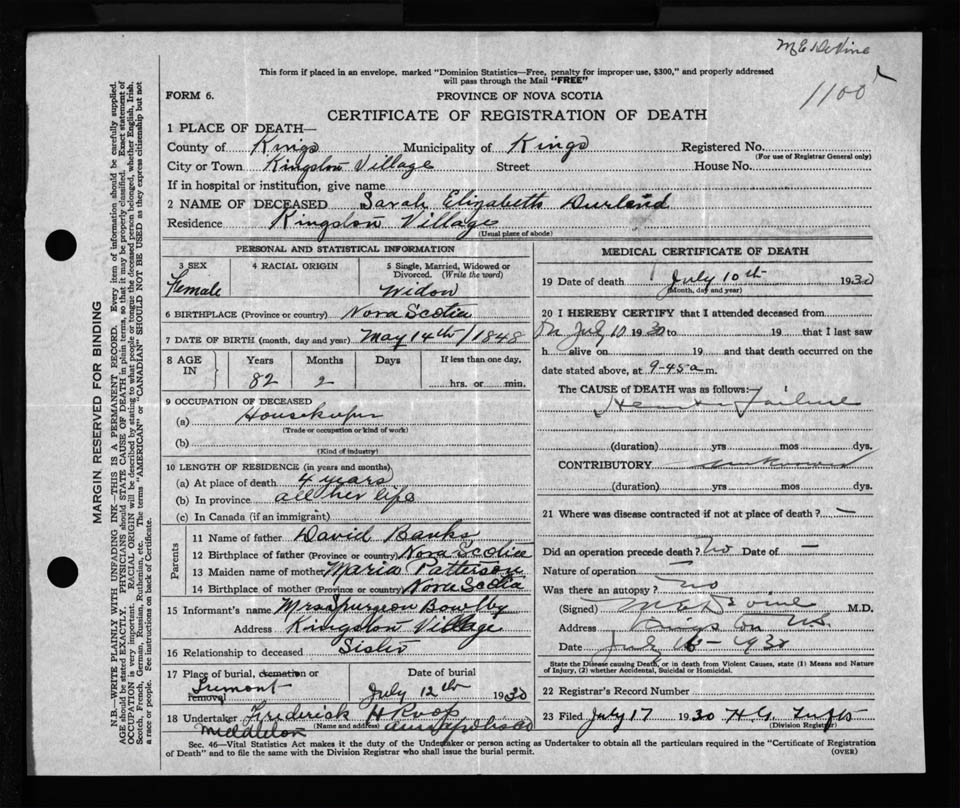 M E DeVine
1100
This form if placed in an envelope, marked "Dominion Statistics—Free, penalty for improper use, $300," and properly addressed
will pass through the Mail "FREE"
FORM 6.
PROVINCE OF NOVA SCOTIA
CERTIFICATE OF REGISTRATION OF DEATH
1 PLACE OF DEATH—
County of Kings Municipality of Kings Registered No.
(For use of Registrar General only)
City or Town Kingston Village Street House No.
If in hospital or institution, give name
2 NAME OF DECEASED Sarah Elizabeth Durland
Residence Kingston Village
(Usual place of abode)
PERSONAL AND STATISTICAL INFORMATION
3 SEX
Female
4 RACIAL ORIGIN
5 Single, Married, Widowed or
Divorced. (Write the word)
Widow
6 BIRTHPLACE (Province or country) Nova Scotia
7 DATE OF BIRTH (month, day and year) May 14th/1848
8 AGE
IN
Years Months Days If less than one day,
82 2 hrs. or min.
9 OCCUPATION OF DECEASED
(a) Housekeeper
(Trade or occupation or kind of work)
(b)
(Kind of industry)
10 LENGTH OF RESIDENCE (in years and months)
(a) At place of death 4 years
(b) In province all her life
(c) In Canada (if an immigrant)
Parents
11 Name of father David Banks
12 Birthplace of father (Province or country) Nova Scotia
13 Maiden name of mother Maria Patterson
14 Birthplace of mother (Province or country) Nova Scotia
15 Informant's name Mrs Spurgeon Bowlby
Address Kingston Village
16 Relationship to deceased Sister
17 Place of burial, cremation or
removal
Tremont
Date of burial
July 12th 1930
18 Undertaker Frederick H Roop
(Name and address)
Middleton Annapolis Co
MEDICAL CERTIFICATE OF DEATH
19 Date of death July 10th 1930
(Month, day and year)
20 I HEREBY CERTIFY that I attended deceased from
On July 10 1930 to 19 that I last saw
h alive on 19 and that death occurred on
date stated above, at 9-45 a m.
The CAUSE of DEATH was as follows:
Heart Failure
(duration) yrs mos dys.
CONTRIBUTORY unknown
(duration) yrs mos dys.
21 Where was disease contracted if not at place of death? —
Did an operation precede death? No Date of —
Nature of operation —
Was there an autopsy? no
(Signed) M E DeVine M.D.
Address Kingston NS.
Date July 16 - 1930
State the Disease causing Death, or in death from Violent Causes, state (1) Means and Nature
of Injury, (2) whether Accidental, Suicidal or Homicidal.
22 Registrar's Record Number
23 Filed July 17 1930 H. G. Tufts
(Division Registrar)
Sec. 46—Vital Statistics Act makes it the duty of the Undertaker or person acting as Undertaker to obtain all the particulars required in the "Certificate of Registration
of Death" and to file the same with the Division Registrar who shall issue the burial permit.
(OVER)
MARGIN RESERVED FOR BINDING
N.B.—WRITE PLAINLY WITH UNFADING INK—THIS IS A PERMANENT RECORD. Every item of information should be carefully supplied.
AGE should be stated EXACTLY. PHYSICIANS should STATE CAUSE OF DEATH in plain terms, so that it may be properly classified. Exact statement of
OCCUPATION is very important. RACIAL ORIGIN will be described by stating to what people or tongue the deceased person belonged, whether English, Irish,
Scotch, French, German, Russian, Ruthenian, etc. The terms "AMERICAN" or "CANADIAN" SHOULD NOT BE USED as they express citizenship but not
a race or people. See instructions on back of Certificate.